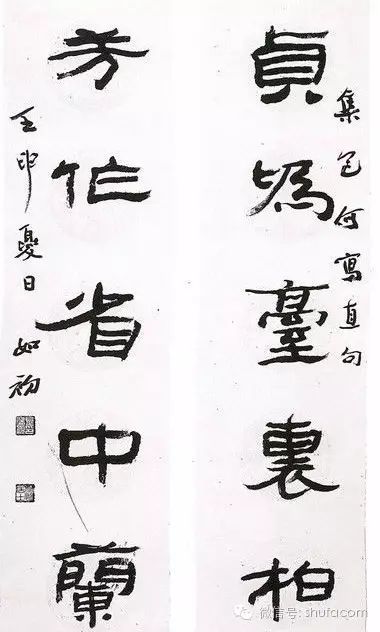 集包何寫直句
貞為臺裏柏
芳作省中蘭
壬申夏日 如初
微信号: shufacom